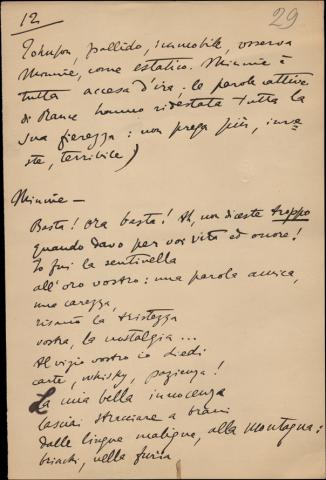 12.
29
Johnson, pallido, immobile, osserva
Minnie, come estatico. Minnie è
tutta accesa d'ira; le parole attive
di Rance hanno ridestata tutta la
sua fierezza: non prega più, inve-
ste, terribile)
Minnie —
Basta! Ora basta! Ah, non diceste troppo
quando davo per voi vita ed onore!
Io fui la sentinella
all'oro vostro: una parola amica,
una carezza,
risanò la tristezza
vostra, la nostalgia...
Al vizio vostro io diedi
carte, whisky, pazienza!
La mia bella innocenza
lasciai stracciare a brani
dalle lingue maligne, alla Montagna:
briachi, nella furia